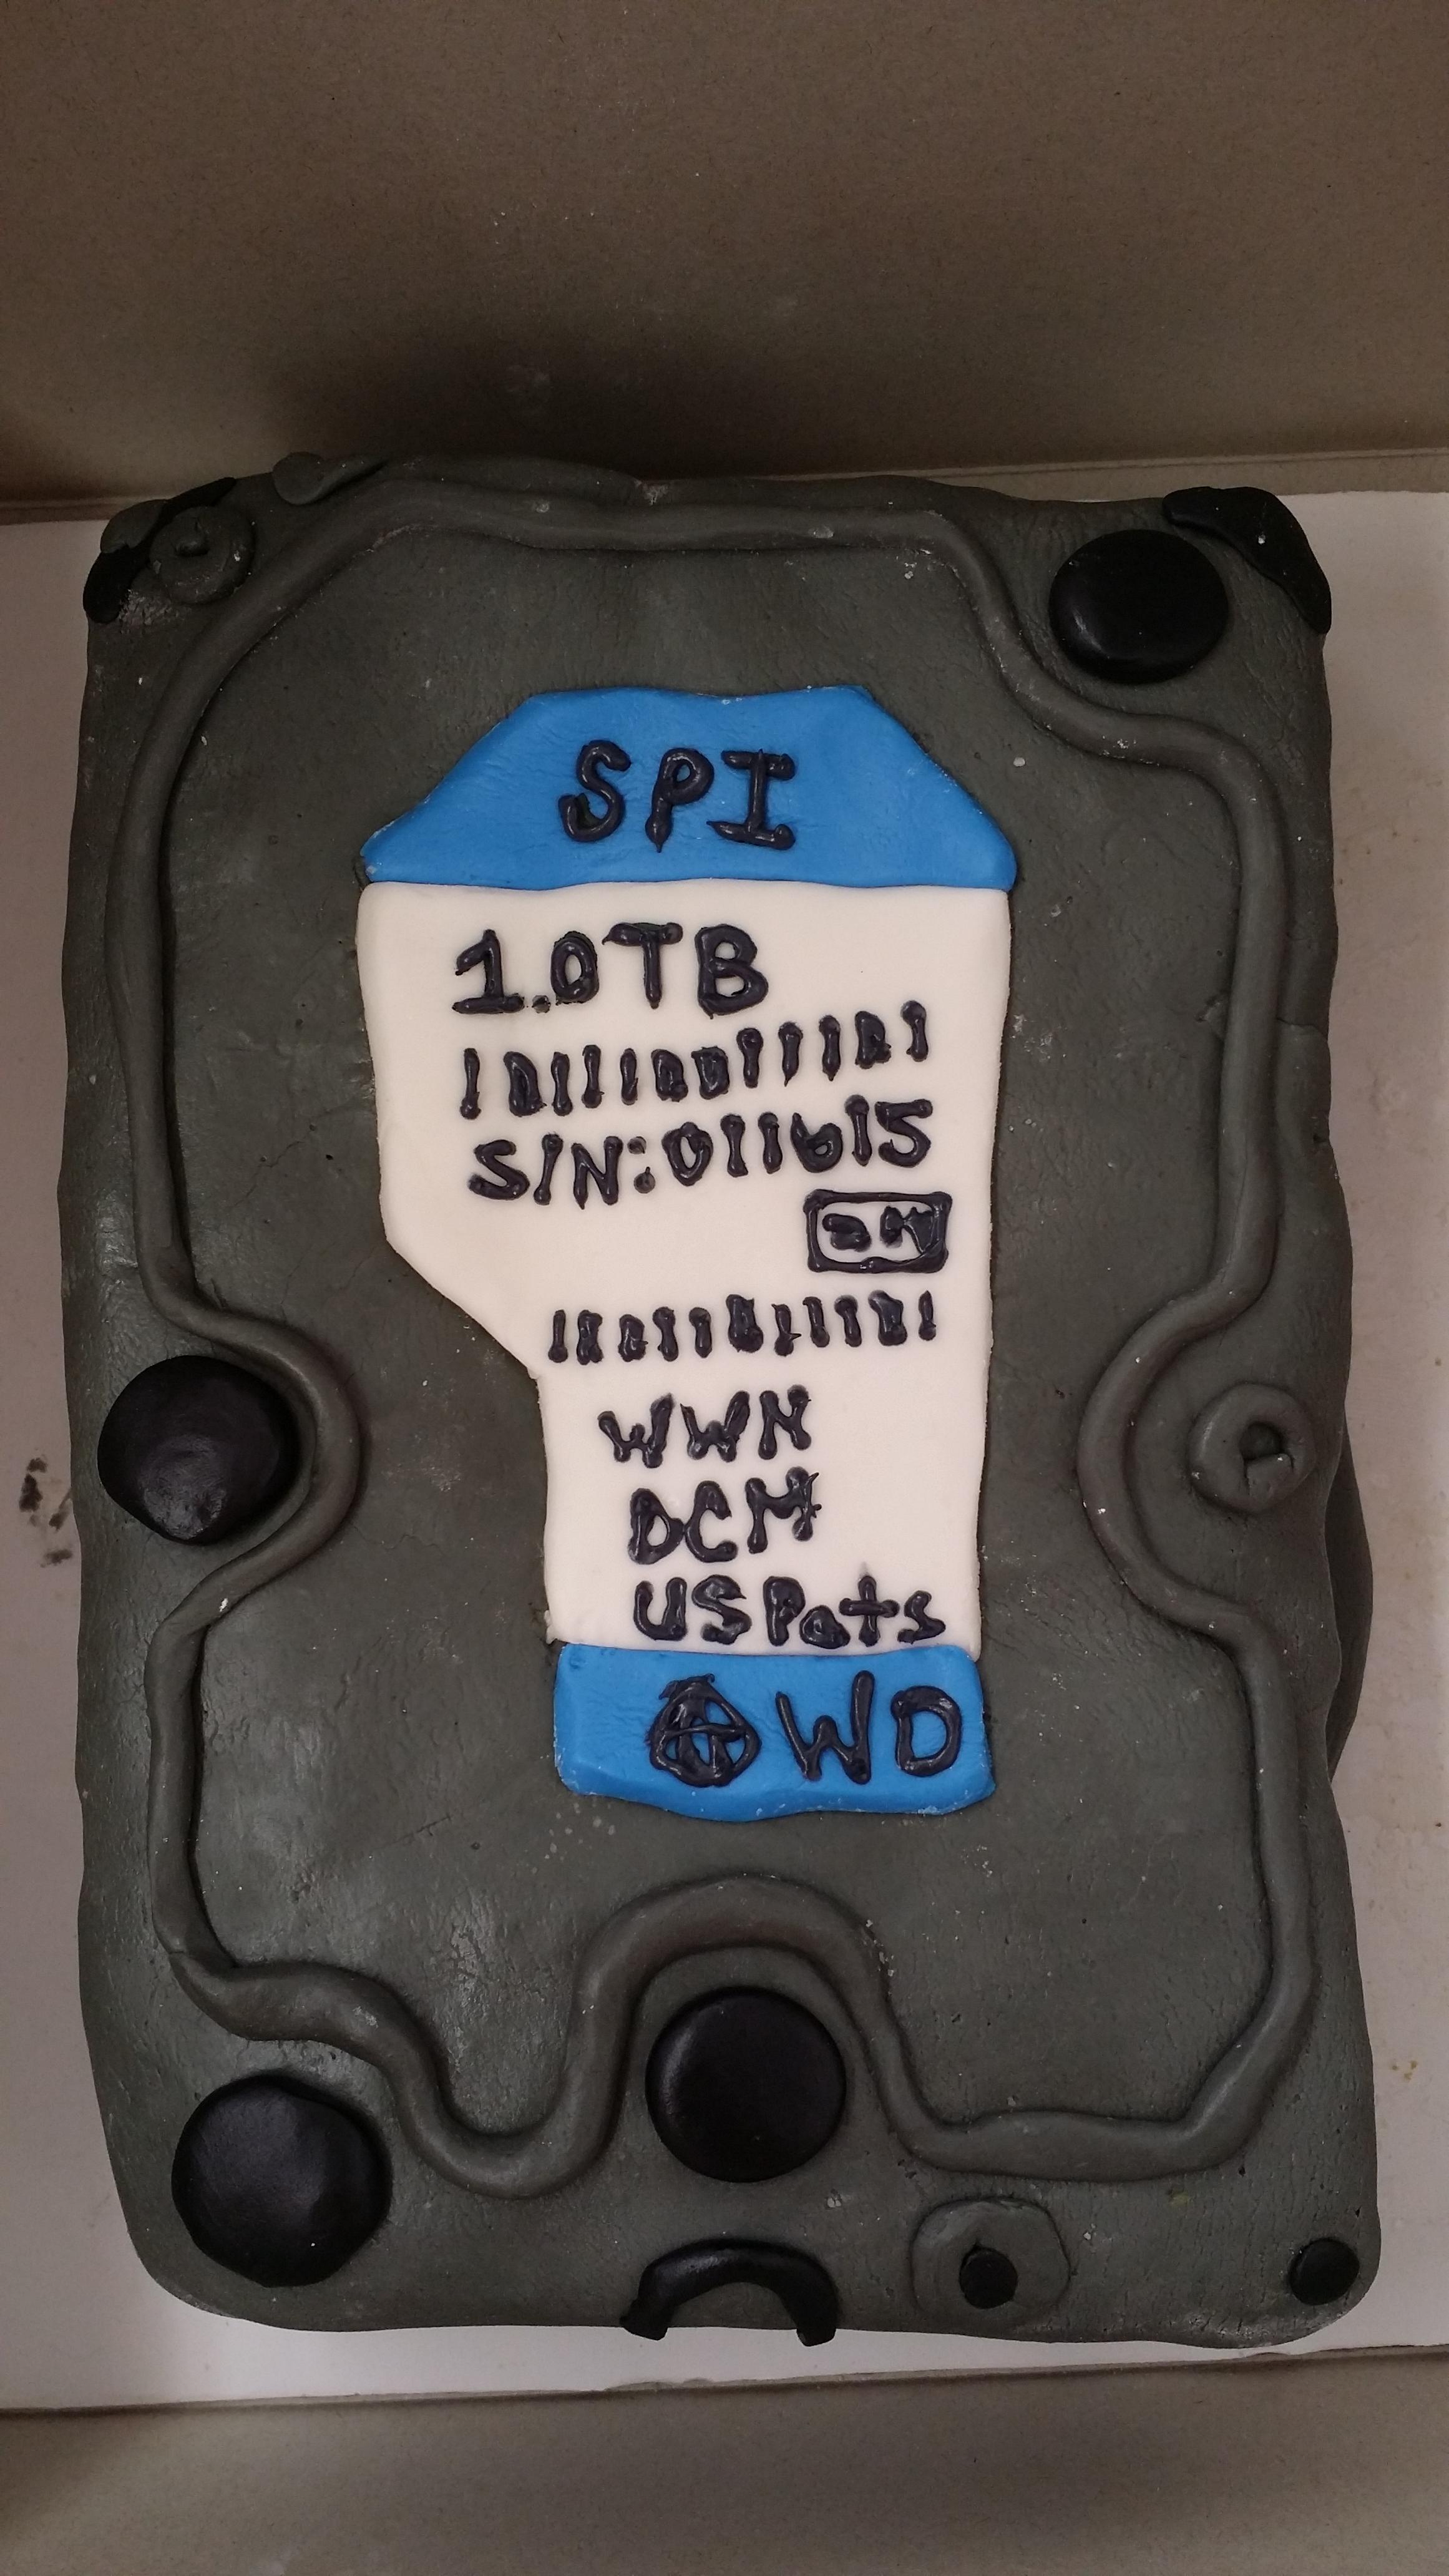 SPI
1.0TB
S/N:011615
WWN
DCM
US Pats
WD